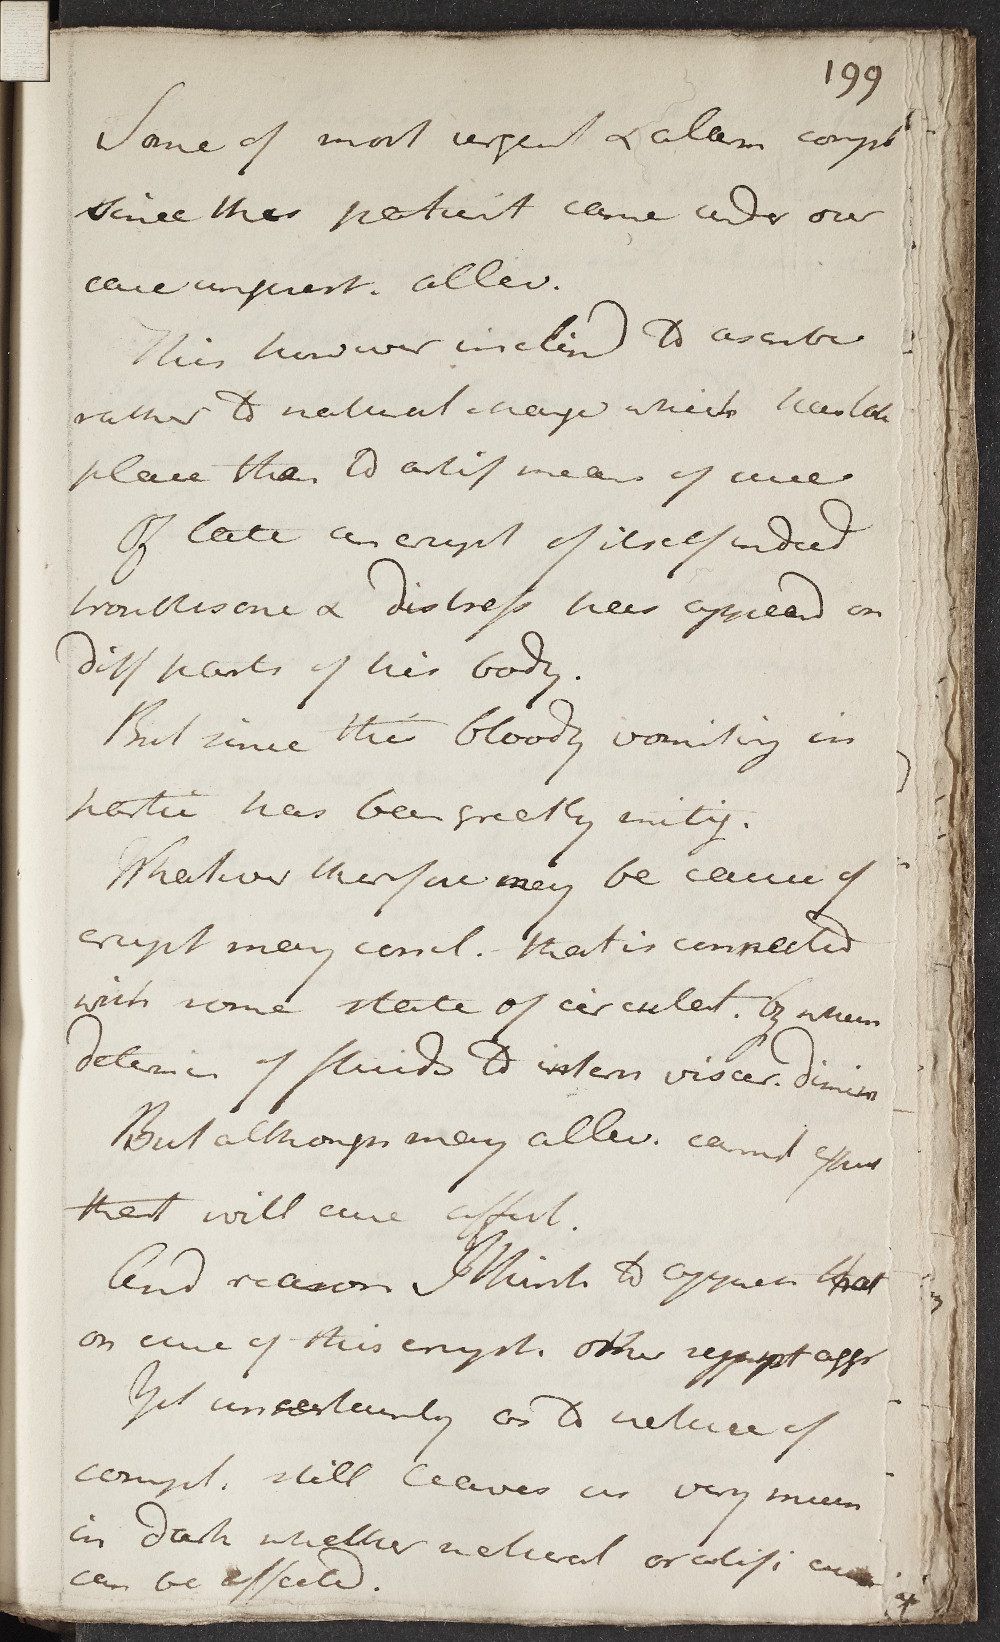 199
Some of most urgent & alarm compt
since this patient came under our
care unquest. allev.
This however inclind to ascribe
rather to natural change which has tak
place than to artif means of cure
Of late an erupt of itself indeed
troublesome & distress has appeard on
diff parts of his body.
But since this bloody vomiting in
partic has been greatly mitig.
Whatever therefore may be cause of
erupt may concl. that is connected
with some state of circulat. by whch
determin of fluids to intern viscer. dimin
But although may allev. cannot
that will cure affect.
And reason I think to appreh that
on cure of this erupt. other sympt aggr
Yet uncertainty as to nature of
compt. still leaves us very much
in dark whether natural or artifi cure
can be effected.